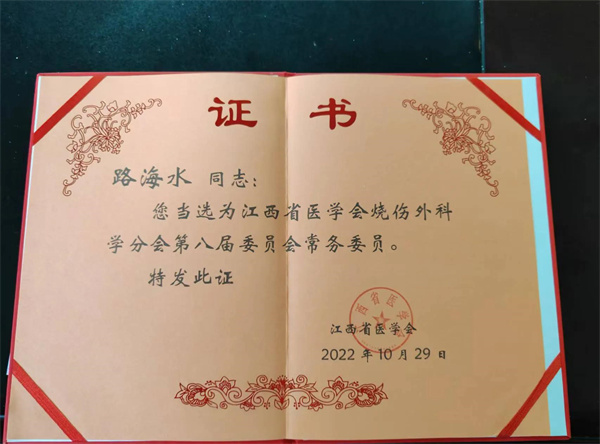 证 书
路海水 同志：
您当选为江西省医学会烧伤外科
学分会第八届委员会常务委员。
特发此证
江西省医学会
2022 年 10 月 29 日
西省医学